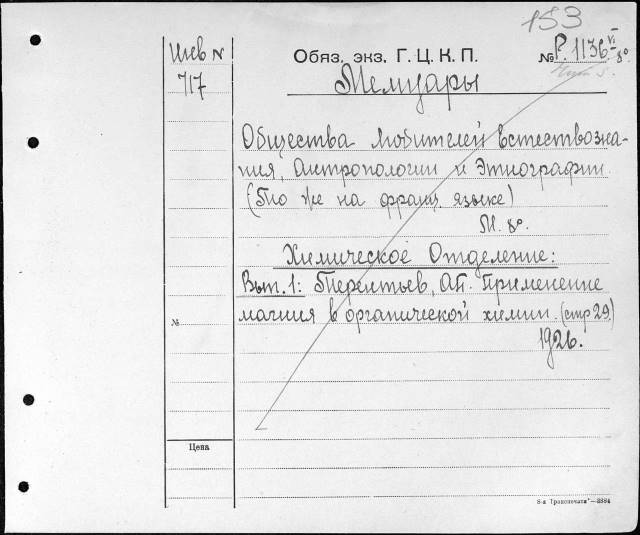 153
Обяз. экз. Г. Ц. К. П.
№ Р. 1136 VI 8°
Шев N
717
Мемуары
Общества любителей естествозна-
ния, Антропологии и Этнографии
(То же на франц. языке)
М. 8°.
Химическое Отделение:
Вып. 1: Терентьев, Ал. Применение
магния в органической химии. (стр 29)
1926.
№
Цена
8-я „Транспечати“—3884